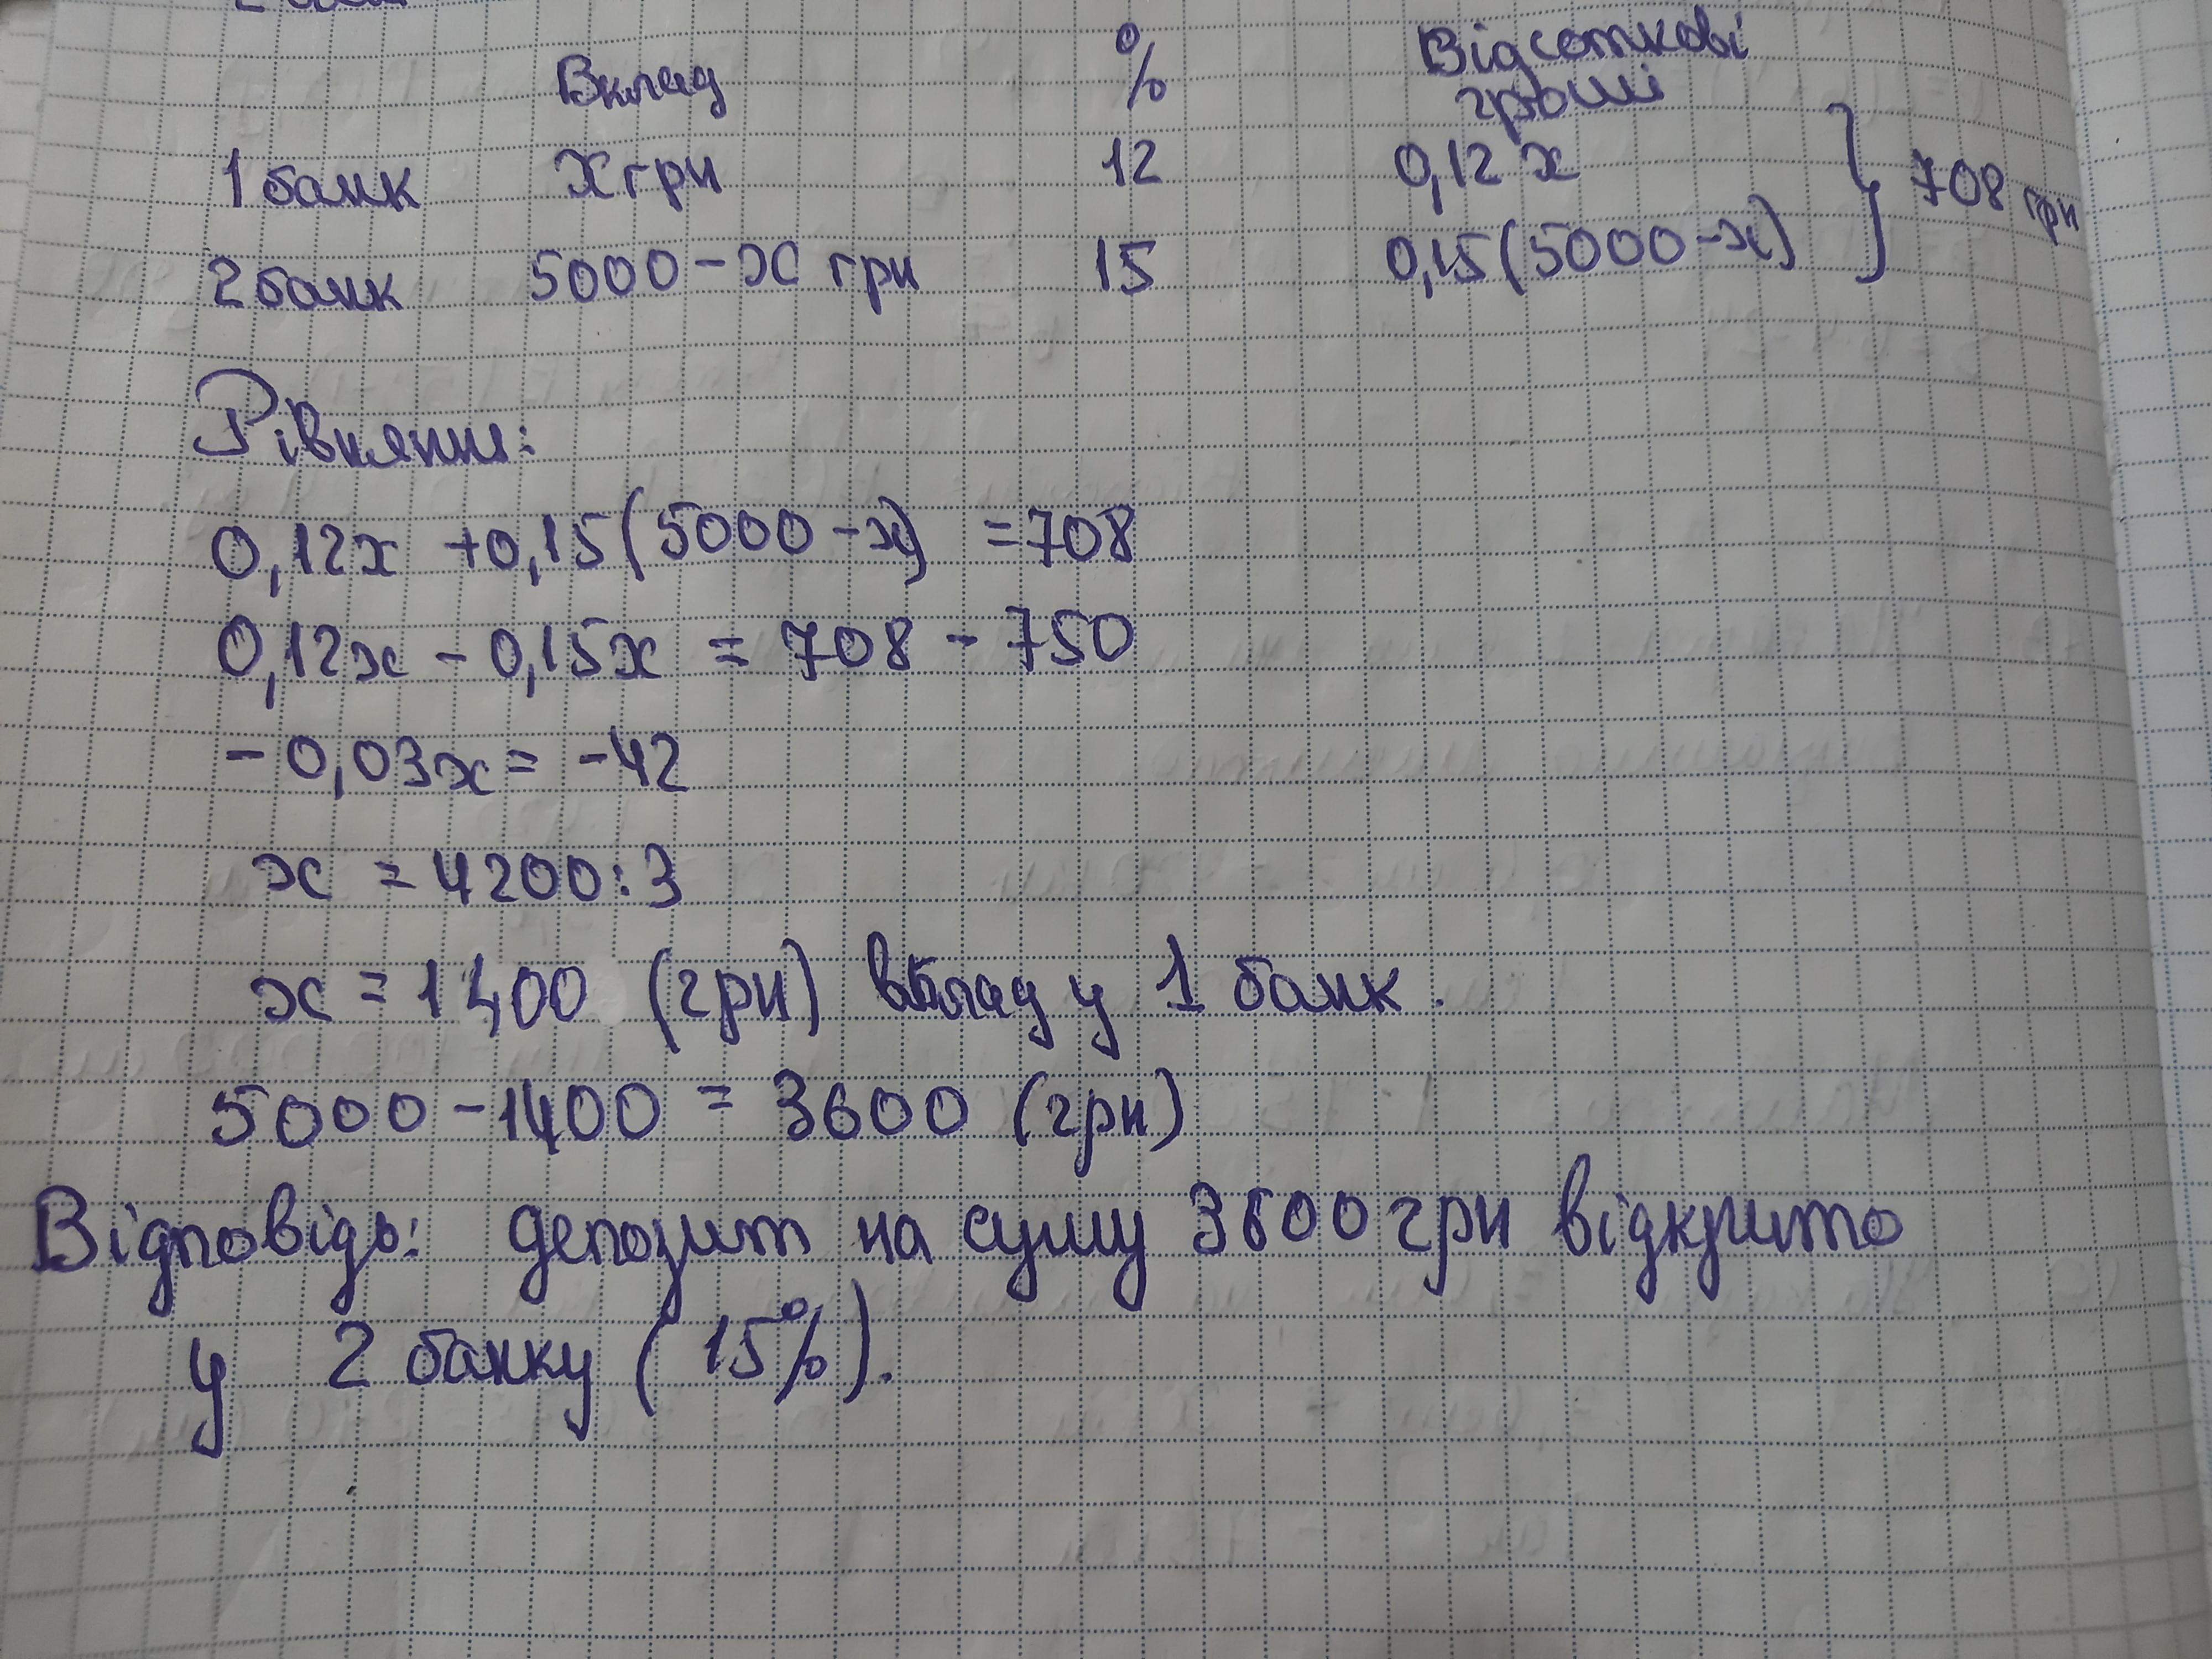 Вклад % Відсоткові гроші
1 банк х грн 12 0,12 х
2 банк 5000-х грн 15 0,15(5000-х) } 708 грн
Рівняння:
0,12х +0,15(5000-х) =708
0,12х - 0,15х = 708 - 750
- 0,03х = -42
х = 4200:3
х = 1400 (грн) вклад у 1 банк.
5000-1400 = 3600 (грн)
Відповідь: депозит на суму 3600 грн відкрито
у 2 банку (15%).